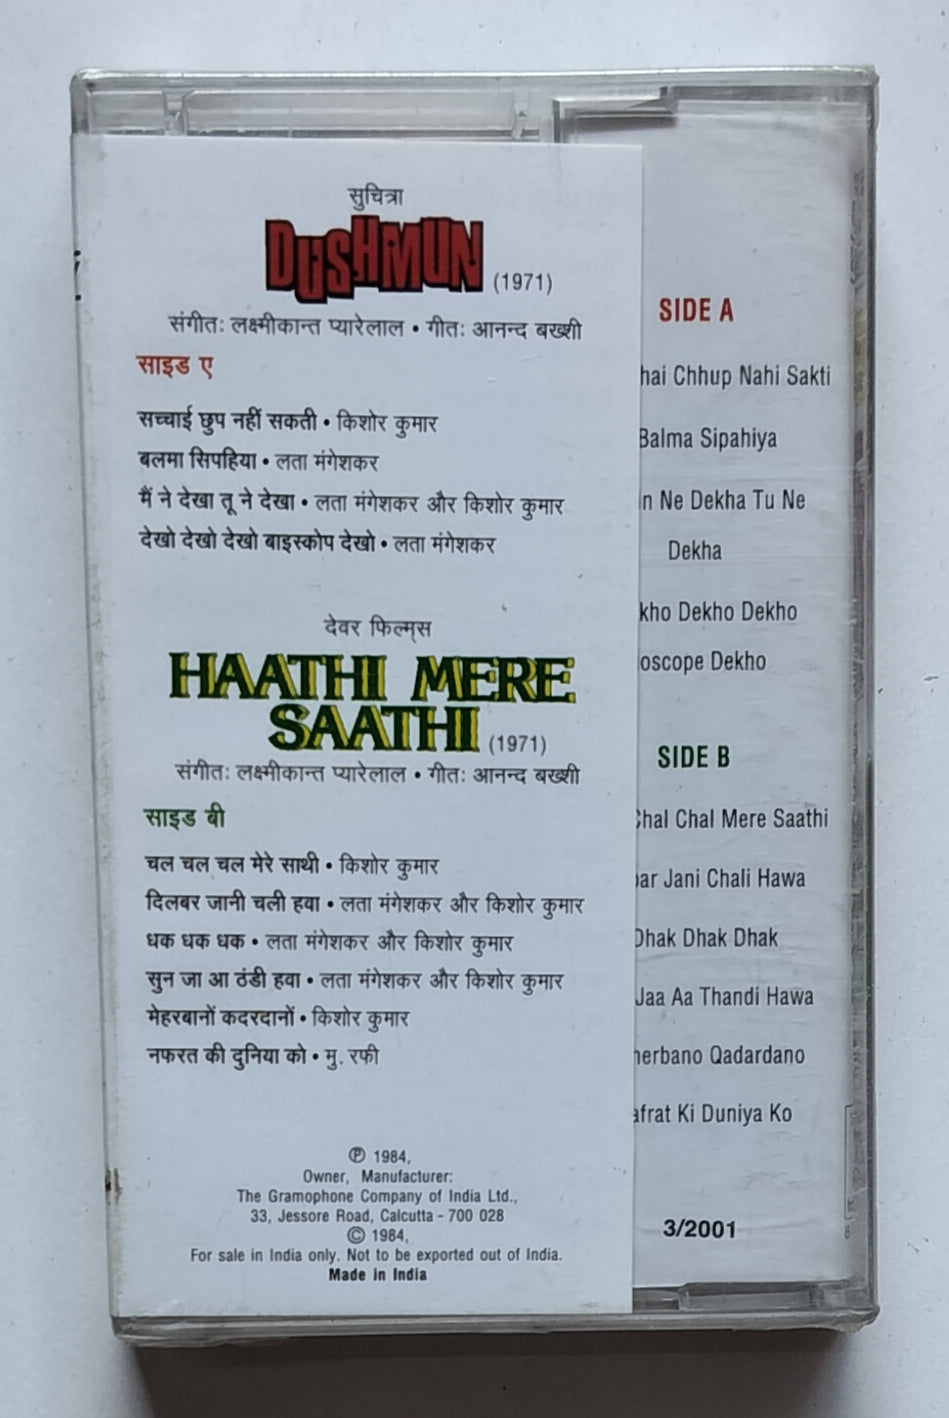 सुचित्रा
DUSHMUN (1971)
संगीतः लक्ष्मीकान्त प्यारेलाल • गीतः आनन्द बख्शी
साइड ए
सच्चाई छुप नहीं सकती • किशोर कुमार
बलमा सिपहिया • लता मंगेशकर
मैं ने देखा तू ने देखा • लता मंगेशकर और किशोर कुमार
देखो देखो देखो बाइस्कोप देखो • लता मंगेशकर
देवर फिल्म्स
HAATHI MERE
SAATHI (1971)
संगीतः लक्ष्मीकान्त प्यारेलाल • गीतः आनन्द बख्शी
साइड बी
चल चल चल मेरे साथी • किशोर कुमार
दिलबर जानी चली हवा • लता मंगेशकर और किशोर कुमार
धक धक धक • लता मंगेशकर और किशोर कुमार
सुन जा आ ठंडी हवा • लता मंगेशकर और किशोर कुमार
मेहरबानों कदरदानों • किशोर कुमार
नफरत की दुनिया को • मु. रफी
℗ 1984,
Owner, Manufacturer:
The Gramophone Company of India Ltd.,
33, Jessore Road, Calcutta - 700 028
© 1984,
For sale in India only. Not to be exported out of India.
Made in India
SIDE A
hai Chhup Nahi Sakti
Balma Sipahiya
n Ne Dekha Tu Ne
Dekha
kho Dekho Dekho
oscope Dekho
SIDE B
Chal Chal Mere Saathi
ar Jani Chali Hawa
Dhak Dhak Dhak
Jaa Aa Thandi Hawa
herbano Qadardano
afrat Ki Duniya Ko
3/2001